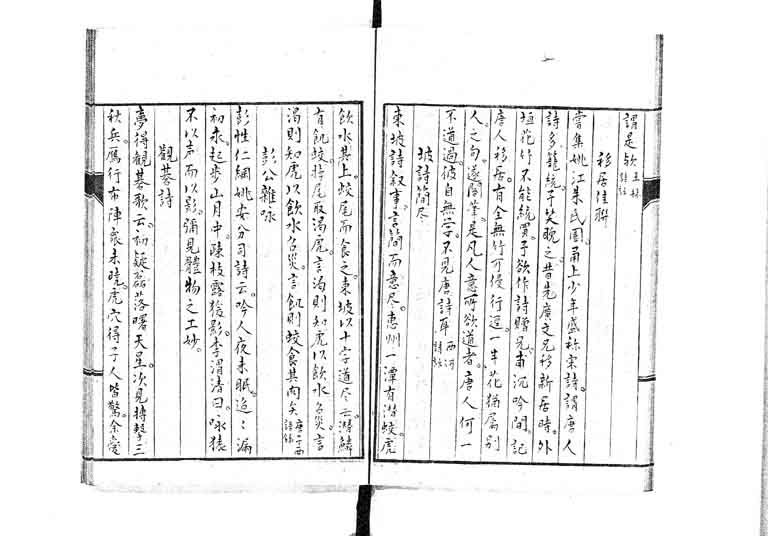 謂是欤 玉林詩話
移居佳聯
嘗集姚江朱氏園甬上少年盛称宋詩謂唐人
詩多籠統予笑晩之昔先廣文兄移新居時外
垣花竹不能統買予欲作詩贈兄甫沉吟間記
唐人移居有全無竹可侵行逕一半花猶属别
人之句遂閣筆是凡人意所欲道者唐人何一
不道過彼自無学不見唐詩耳 西河詩話
坡詩簡尽
東坡詩叙事言簡而意尽惠州一潭有潜蛟虎
飲水其上蛟尾而食之東坡以十字道尽云潜鱗
有飢蛟掉尾取渴虎言渴則知虎以飲水召災言
渴則知虎以飲水召災言飢則蛟食其肉矣 唐子西語録
彭公雜咏
彭性仁綱姚安分司詩云吟人夜未眠迢〻漏
初永起步山月中疎枝露猿影李渭清曰咏猿
不以声而以影彌見體物之工妙
觀碁詩
夢得觀碁歌云初疑磊落曙天星次見搏擊三
秋兵鴈行布陣衆未曉虎穴得子人皆驚余愛